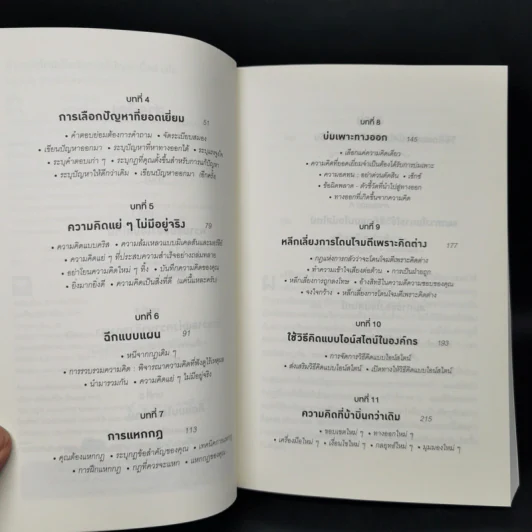 บทที่ 4
การเลือกปัญหาที่ยอดเยี่ยม 51
• คำตอบย่อมต้องการคำถาม • จัดระเบียบสมอง
• เขียนปัญหาออกมา • ระบุปัญหาที่หาทางออกได้
• ระบุคำตอบเก่า ๆ • ระบุกฎที่คุณตั้งขึ้นสำหรับการแก้ปัญหา
• ระบุปัญหาให้ดีกว่าเดิม • เขียนปัญหาออกมา อีกครั้ง
บทที่ 5
ความคิดแย่ ๆ ไม่มีอยู่จริง 79
• ความคิดแบบคริส • ความล้มเหลวแบบมิเคลสันและมอร์ลีย์
• ความคิดแย่ ๆ ที่ประสบความสำเร็จอย่างถล่มทลาย
• อย่าโยนความคิดใหม่ ๆ ทิ้ง • บันทึกความคิดของคุณ
• ยิ่งมากยิ่งดี • ความคิดเป็นสิ่งที่ดี
บทที่ 6
ฉีกแบบแผน 91
• หนีจากกฎเดิม ๆ
• การรวบรวมความคิด : พิจารณาความคิดที่ฟังดูไร้เหตุผล
• นำมารวมกัน • ความคิดแย่ ๆ ไม่มีอยู่จริง
บทที่ 7
การแหกกฎ 113
• คุณต้องแหกกฎ • ระบุกฎข้อสำคัญของคุณ • เทคนิคการแหกกฎ
• การฝึกแหกกฎ • กฎที่ควรจะแหก • แหกกฎของคุณ
บทที่ 8
บ่มเพาะทางออก 145
• เลือกแค่ความคิดเดียว
• ความคิดที่ยอดเยี่ยมจำเป็นต้องได้รับการบ่มเพาะ
• ความอดทน : อย่าด่วนตัดสิน • เซ็กซ์
• ข้อผิดพลาด - ตัวชี้วัดที่นำไปสู่ทางออก
• ทางออกที่เกิดขึ้นจากความคิด
บทที่ 9
หลีกเลี่ยงการโดนโจมตีเพราะคิดต่าง 177
• กฎแห่งการกลัวว่าจะโดนโจมตีเพราะคิดต่าง
• ทำความเข้าใจเสียงต่อต้าน • การเป็นฝ่ายถูก
• หลีกเลี่ยงการถูกลงโทษ • อ้างสิทธิในความคิดความชอบของคุณ
• จงใจกว้าง • หลีกเลี่ยงการโดนโจมตีเพราะคิดต่าง
บทที่ 10
ใช้วิธีคิดแบบไอน์สไตน์ในองค์กร 193
• การจัดการวิธีคิดแบบไอน์สไตน์
• ส่งเสริมวิธีคิดแบบไอน์สไตน์ • เปิดทางให้วิธีคิดแบบไอน์สไตน์
บทที่ 11
ความคิดที่บ้าบิ่นกว่าเดิม 215
• ขอบเขตใหม่ ๆ • ทางออกใหม่ ๆ
• เครื่องมือใหม่ ๆ • เงื่อนไขใหม่ ๆ • กลยุทธ์ใหม่ ๆ • มุมมองใหม่ ๆ